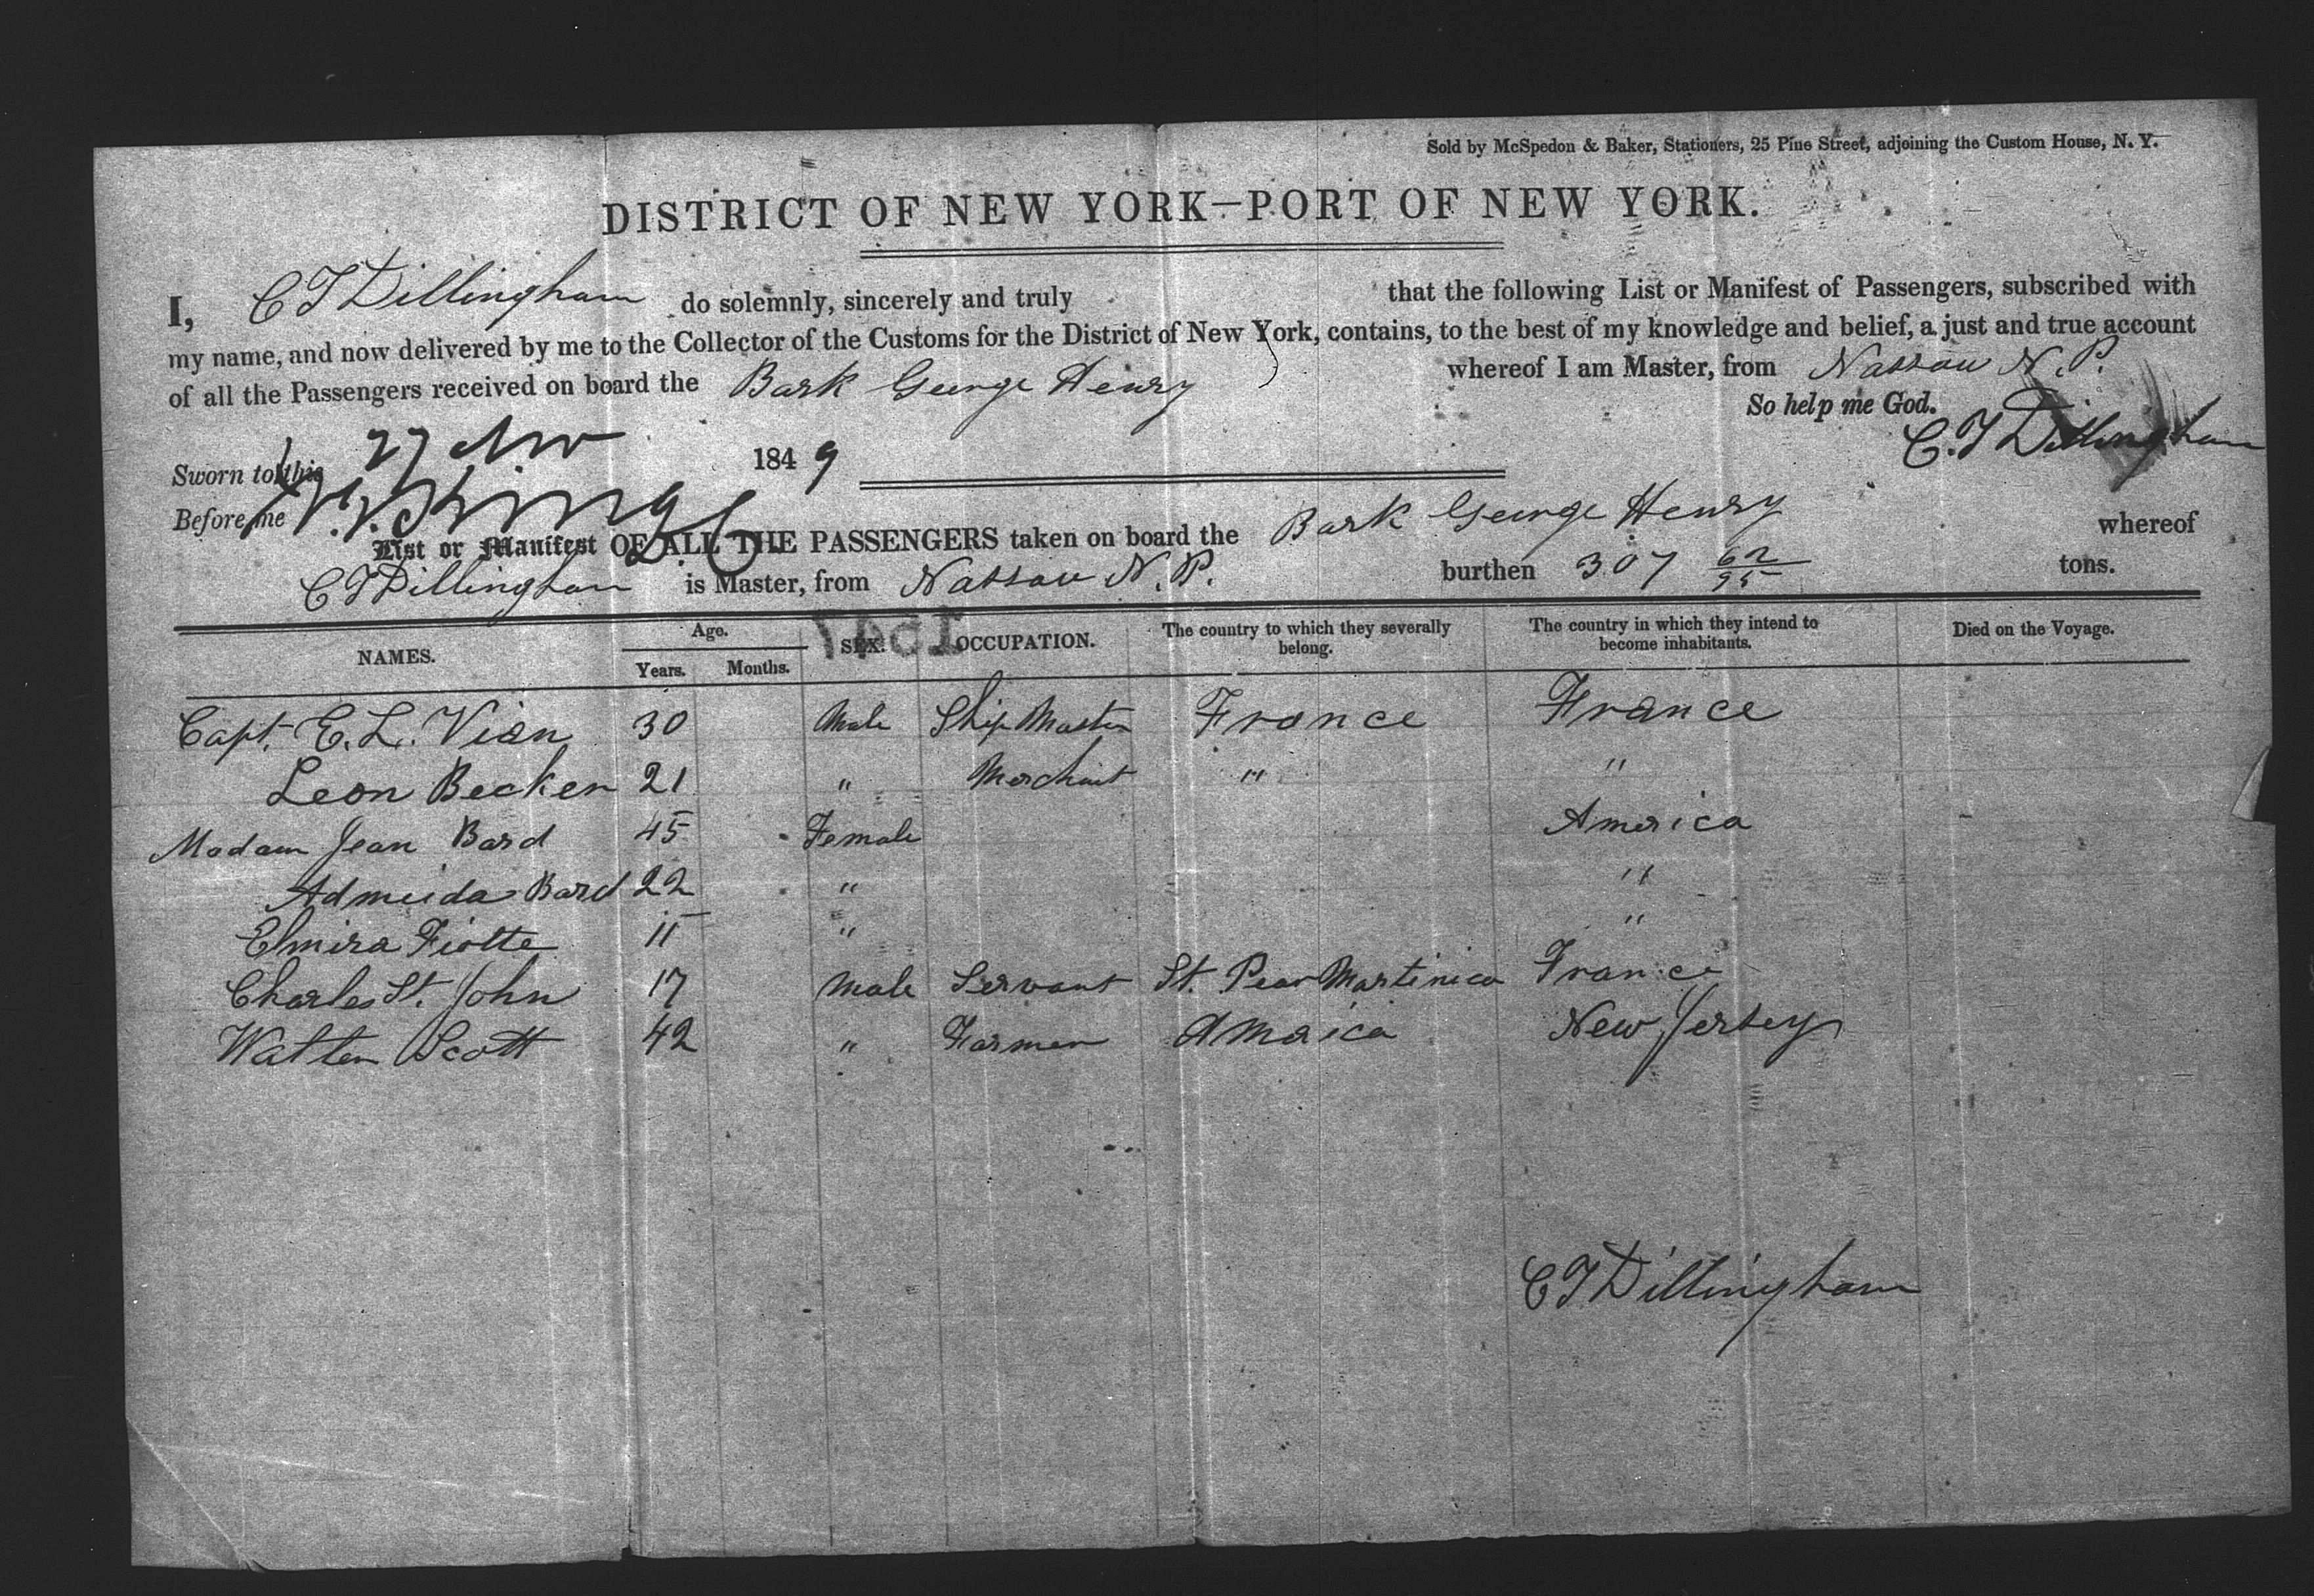 Sold by McSpedon & Baker, Stationers, 25 Pine Street, adjoining the Custom House, N. Y.
DISTRICT OF NEW YORK—PORT OF NEW YORK.
I, C T Dillingham do solemnly, sincerely and truly that the following List or Manifest of Passengers, subscribed with
my name, and now delivered by me to the Collector of the Customs for the District of New York, contains, to the best of my knowledge and belief, a just and true account
of all the Passengers received on board the Bark George Henry whereof I am Master, from Nassau N. P.
So help me God.
Sworn to this 27 Nov 1849 C. T Dillingham
Before me
List or Manifest OF ALL THE PASSENGERS taken on board the Bark George Henry whereof
C T Dillingham is Master, from Nassau N. P. burthen 307 62/95 tons.
NAMES. Age. Years. Months. SEX. OCCUPATION. The country to which they severally belong. The country in which they intend to become inhabitants. Died on the Voyage.
Capt. E. L. Vian 30 Male Ship Master France France
Leon Becker 21 " Merchant " "
Madam Jean Bard 45 Female America
Admeida Bard 22 " "
Elmira Fiotte 11 " "
Charles St. John 17 Male Servant St. Pear Martinico France
Walter Scott 42 " Farmer America New Jersey
C T Dillingham